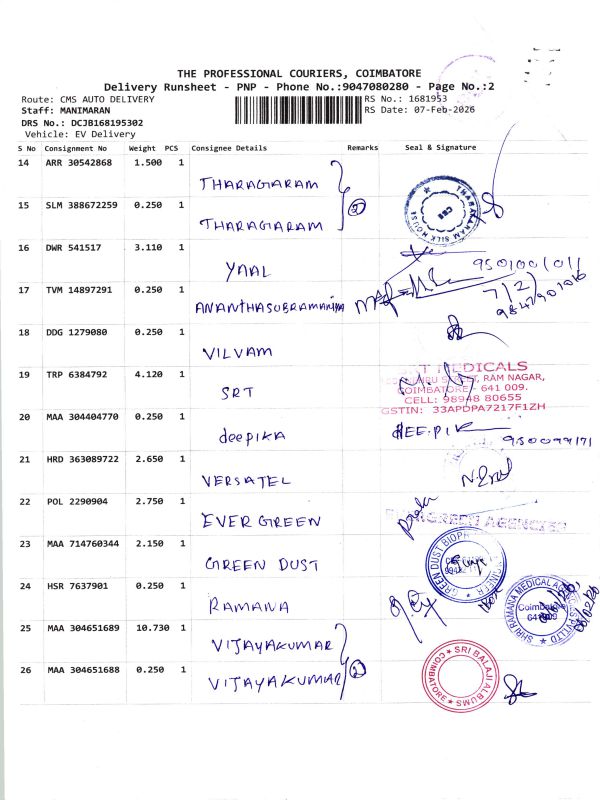 THE PROFESSIONAL COURIERS, COIMBATORE
Delivery Runsheet - PNP - Phone No.:9047080280 - Page No.:2
Route: CMS AUTO DELIVERY
RS No.: 1681953
Staff: MANIMARAN
RS Date: 07-Feb-2026
DRS No.: DCJB168195302
Vehicle: EV Delivery
S No Consignment No Weight PCS Consignee Details Remarks Seal & Signature
14 ARR 30542868 1.500 1
THARAGARAM
2
15 SLM 388672259 0.250 1
THARAGARAM
THARAKARAM SILK HOUSE
CBE
16 DWR 541517 3.110 1
YAAL
17 TVM 14897291 0.250 1
ANANTHASUBRAMANIYA
7/2
18 DDG 1279080 0.250 1
VILVAM
19 TRP 6384792 4.120 1
SRT
MEDICALS
RAM NAGAR,
COIMBATORE - 641 009.
CELL: 98948 80655
GSTIN: 33APDPA7217F1ZH
20 MAA 304404770 0.250 1
deepika
DEEPIK
21 HRD 363089722 2.650 1
VERSATEL
22 POL 2290904 2.750 1
EVER GREEN
EVERGREEN AGENCIES
23 MAA 714760344 2.150 1
GREEN DUST
GREEN DUST
24 HSR 7637901 0.250 1
RAMANA
SHRI RAMANA MEDICAL
PVT LTD
Coimbatore
25 MAA 304651689 10.730 1
VIJAYAKUMAR
2
26 MAA 304651688 0.250 1
VIJAYAKUMAR
SRI BALAJI ALBUMS
COIMBATORE